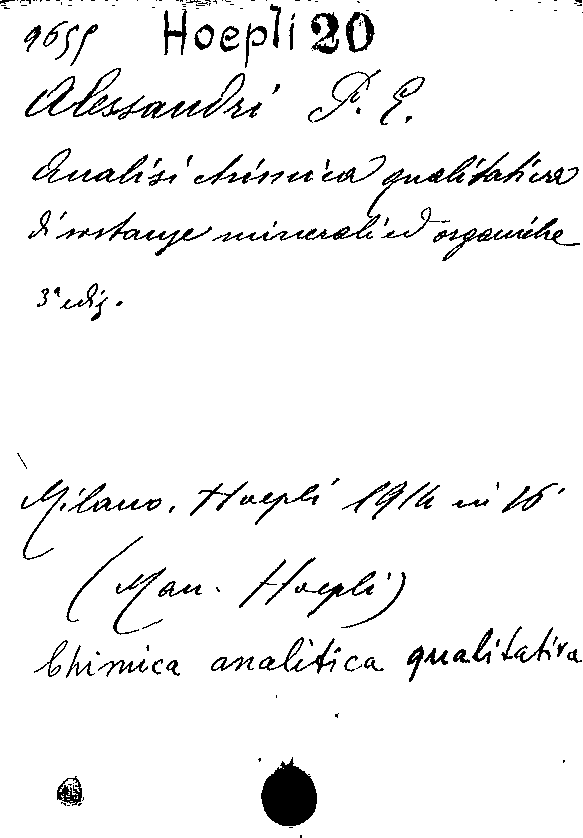 9659 Hoepli 20
Alessandri P. E.
Analisi chimica qualitativa
di sostanze minerali ed organiche
3ª ediz.
Milano, Hoepli 1914 in 16°
(Man. Hoepli)
Chimica analitica qualitativa